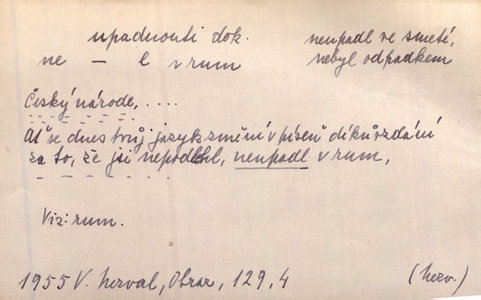 upadnouti dok. neupadl ve smetí,
ne – l v rum nebyl odpadkem
Český národe, . . . .
Ať se dnes tvůj jazyk změní v píseň díkůvzdání
za to, že jsi nepodlehl, neupadl v rum,
Viz: rum.
1955 V. Nerval, Obraz, 129, 4 (herv.)